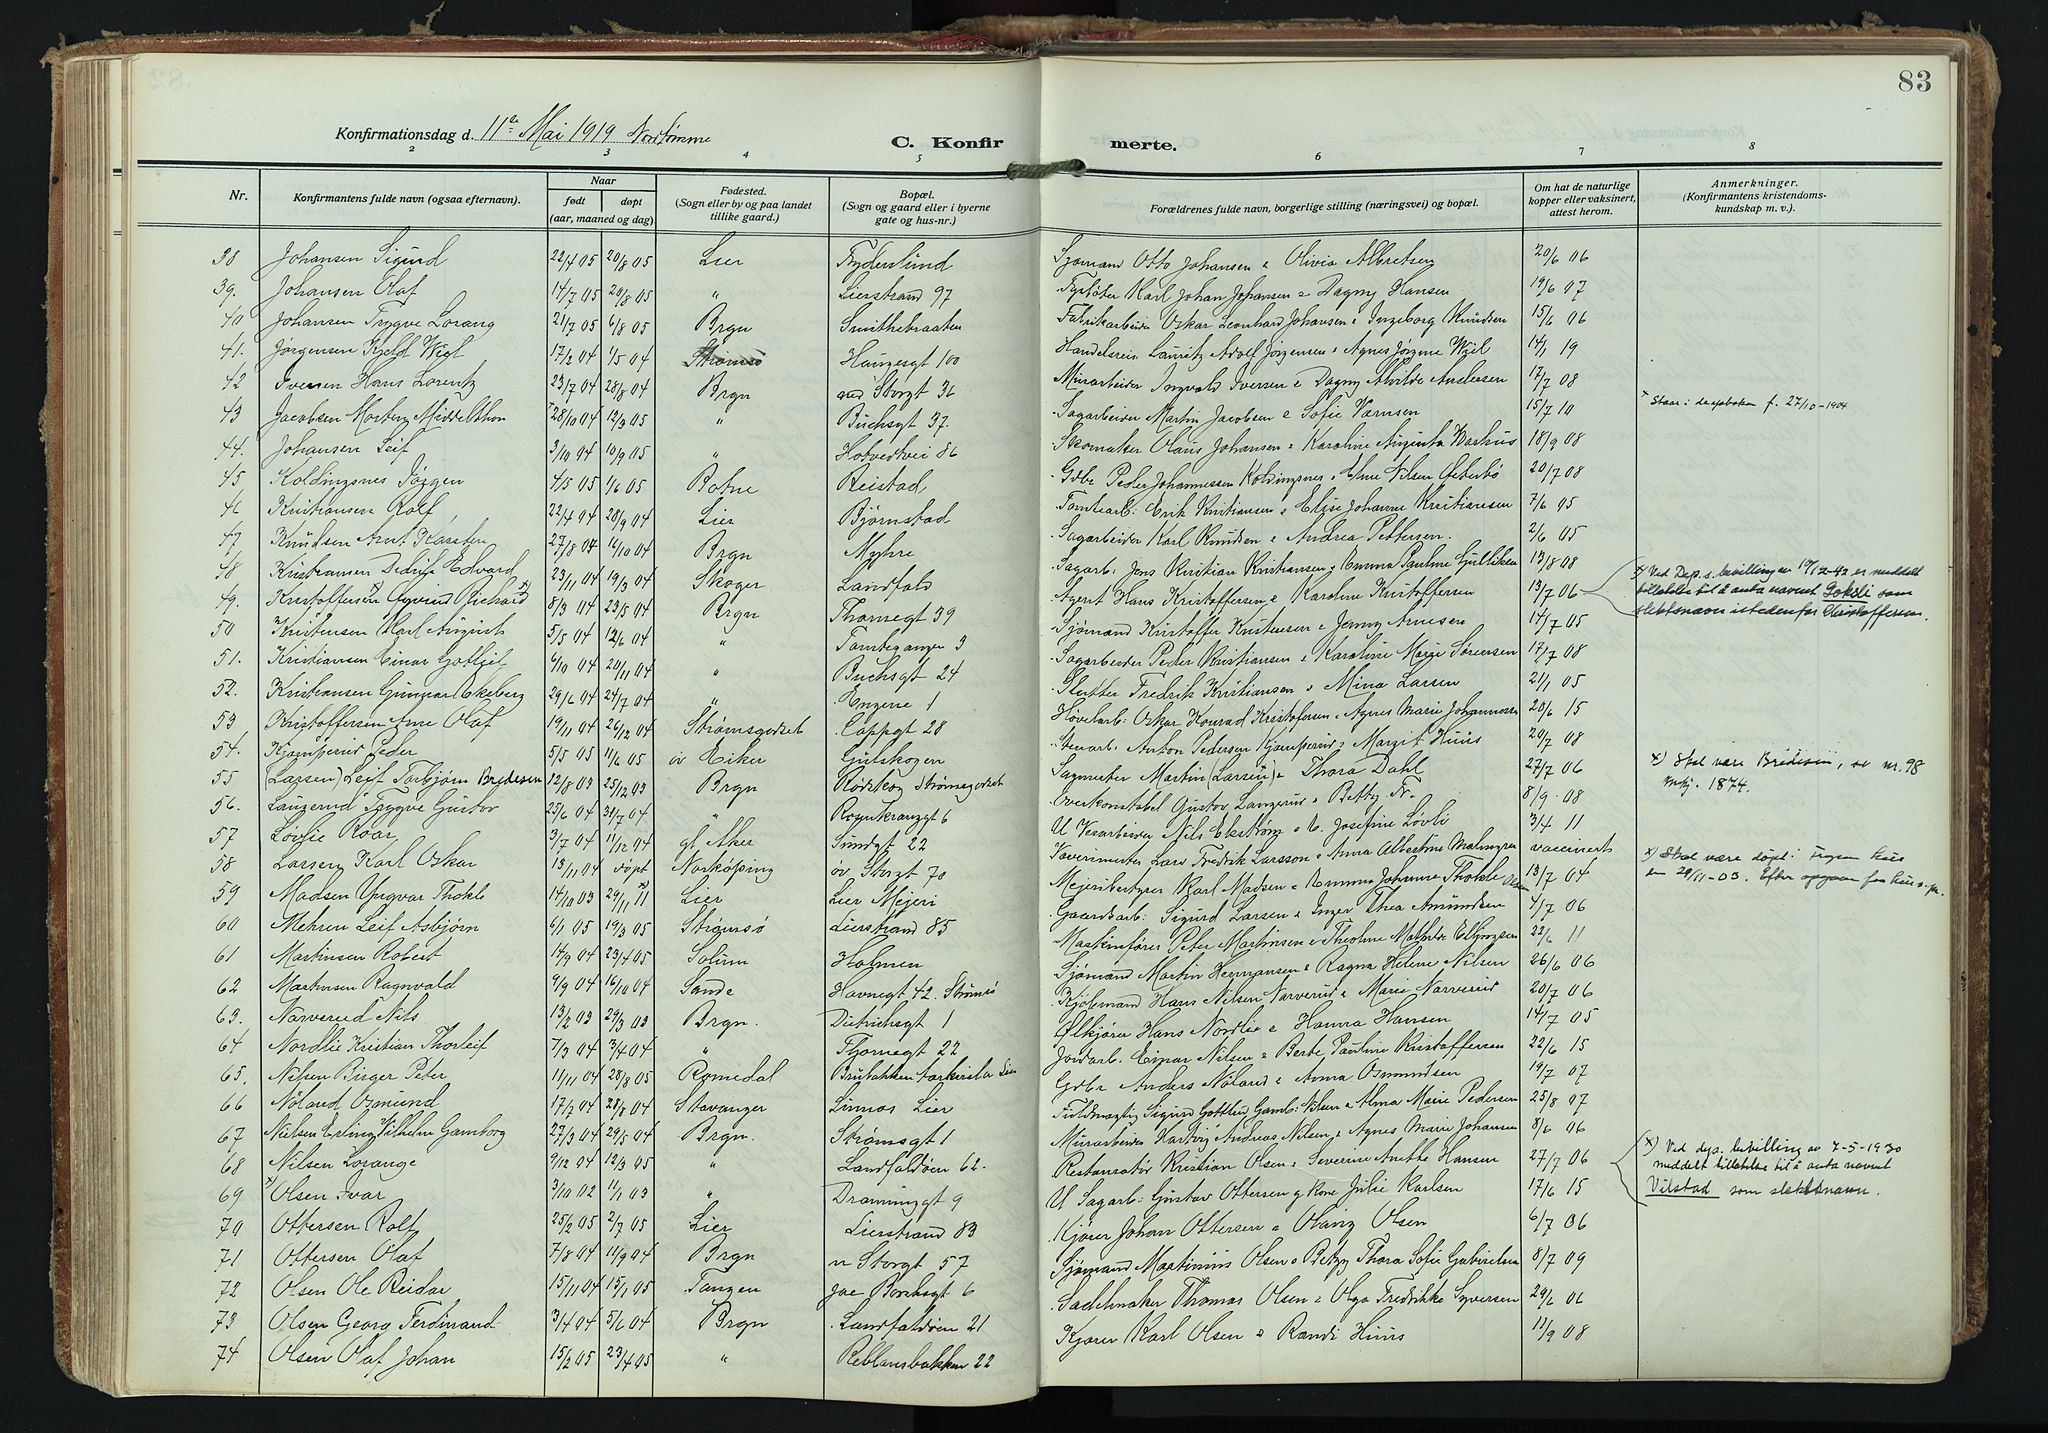 83
Konfirmationsdag d. 11te Mai 1919
C. Konfirmerte.
2 3 4 5 6 7 8
Nr.
Konfirmantens fulde navn (ogsaa efternavn).
Naar
født døpt
(aar, maaned og dag)
Fødested.
(Sogn eller by og paa landet
tillike gaard.)
Bopæl.
(Sogn og gaard eller i byerne
gate og hus-nr.)
Forældrenes fulde navn, borgerlige stilling (næringsvei) og bopæl.
Om hat de naturlige
kopper eller vaksinert,
attest herom.
Anmerkninger.
(Konfirmantens kristendoms-
kundskap m. v.).
38 Johansen Sigurd 22/4 05 20/8 05 Lier Frydenlund Sjømand Otto Johansen & Olivia Albretsen 20/6 06
39. Johansen Olaf 14/7 05 20/8 05 " Lierstrand 97 Karl Johan Johansen & Dagny Hansen 19/6 07
40 Johansen Trygve Lorang 21/7 05 6/8 05 Brgn Smithebraaten Fabrikarbeider Oskar Leonhard Johansen & Ingeborg Knudsen 15/6 06
41. Jørgensen Kjeld Wiel 17/2 04 1/5 04 Strømsø Haugesgt 100 Handelsreis. Lauritz Adolf Jørgensen & Agnes Jørgine Wiel 14/1 19
42 Iversen Hans Lorentz 23/7 04 28/8 04 Brgn ned Storgt 36 Murarbeider Ingvald Iversen & Dagny Alvilde Andersen 17/7 08
43 Jacobsen Morberg Middelthon x 28/10 04 12/3 05 " Buchsgt 37. Sagarbeider Martin Jacobsen & Sofie Varnsen 15/7 10 x Staar i daapsboken f. 27/10-1904
44. Johansen Leif 3/10 04 10/9 05 " Hotvedtvei 86 Skomaker Olaus Johansen & Karoline Augusta Markus 18/9 08
45 Koldingsnes Jørgen 4/5 05 1/6 05 Botne Reistad Gdbr Peder Johannessen Koldingsnes & Nilsen 20/7 08
46 Kristiansen Rolf 22/4 04 28/9 04 Lier Bjørnstad Tomtearb: Erik Kristiansen & Elise Johanne Kristiansen 7/6 05
47 Knudsen Arnt Karsten 27/8 04 16/10 04 Brgn Myhre Sagarbeider Karl Knudsen & Andrea Pettersen. 2/6 05
48 Kristiansen Edvard 23/11 04 19/3 04 Skoger Landfald Sagarb. Jens Kristian Kristiansen & Emma Pauline Gulliksen 13/8 08
49. Kristoffersen x) Øyvind Richard x) 8/3 04 23/5 04 Brgn Thornegt 39 Agent Hans Kristoffersen & Karoline Kristoffersen 13/7 06
x) Ved Dep.s bevilling av 19/12-42 er meddelt
tillatelse til å anta navnet Goksli som
slektsnavn istedenfor Christoffersen.
50 Kristensen Karl August 5/5 04 12/6 04 " Tomtegangen 3 Sjømand Kristoffer Kristensen & Jenny Arnesen 14/7 05
51. Kristiansen Einar 9/10 04 20/11 04 " Buchsgt 24 Sagarbeider Peder Kristiansen & Karoline Marie Sørensen 17/7 08
52. Kristiansen Gunnar Ekeberg 29/6 04 24/7 04 " Engene 1 Slakter Fredrik Kristiansen & Mina Larsen 21/1 05
53 Kristoffersen Arne Olaf 19/11 04 26/12 04 Strømsgodset Cappgt 28 Høvelarb: Oskar Konrad Kristofersen & Agnes Marie Johannesen 20/6 15
54. Kjomperud Peder 5/5 05 11/6 05 øv Eiker Gulskogen Stenarb. Anton Pedersen Kjomperud & Margit Huus 20/7 08
55 (Larsen) Leif Torbjørn Bredesen 12/8 03 25/12 03 Brgn Rødskog Strømsgodset Sagmester Martin (Larsen) & Thora Dahl 27/7 06
x) Skal være Bredesen, se nr. 98
Mkj. 1874.
56. Langerud Trygve Gustav 25/6 04 31/7 04 " Rosenkranzgt 6 Overkonstabel Gustav Langerud & Betty N. 8/9 08
57 Løvlie Roar 3/7 04 11/12 04 gl Aker Sundgt 22 U Verarbeider Nils Ekstrøm & U. Josefine Løvli 3/4 11
58 Larsen Karl Oskar 13/11 04 døpt Norkøping øv Storgt 70 Vævermester Lars Fredrik Larsson & Anna Albertine Malmgren vaccinerts
59 Madsen Yngvar Thokle 14/10 03 29/11 x) Lier Lier Mejeri Mejeribestyrer Karl Madsen & Emma Johanne Thokle Olsen 13/7 04
x) Skal være døpt i
en 29/11-03. Efter opgave fra
60 Mehren Leif Asbjørn 6/1 05 19/3 05 Strømsø Lierstrand 85 Gaardsarb: Sigurd Larsen & Inger Thea Amundsen 4/7 06
61 Martinsen Robert 14/9 04 23/4 05 Solum Holmen Maskinfører Peter Martinsen & Theoline Mathilde 22/6 11
62 Martinsen Ragnvald 9/9 04 16/10 04 Sande Havnegt 42. Strømsø Sjømand Martin Hermansen & Ragna Helene Nilsen 26/6 06
63. Narverud Nils 13/2 03 29/3 03 Brgn. Dietrichsgt 1 Kjøbmand Hans Nilsen Narverud & Marie Narverud 20/7 06
64 Nordlie Kristian Thorleif 7/3 04 3/4 04 " Thornegt 22 Ølkjører Hans Nordlie & Hanna Hansen 14/7 05
65. Nilsen Birger Peter 11/11 04 28/8 05 Romedal Brubakken Lier Jordarb. Einar Nilsen & Berte Pauline Kristoffersen 22/6 15
66 Nøland Osmund 17/7 04 28/8 04 Stavanger Linnes Lier Gdbr Anders Nøland & Anna Osmundsen 19/7 07
67 Nielsen Erling Vilhelm Gamborg 27/3 04 29/5 04 Brgn. Strømsgt 1 Fuldmægtig Sigurd Gottlieb Gamb: Nilsen & Alma Marie Pedersen 25/8 07
68 Nilsen Lorange 9/12 04 12/3 05 " Landfaldøen 62. Murarbeider Hartvig Andreas Nilsen & Agnes Marie Johansen 8/6 06
69 x Olsen Ivar 3/10 02 1/1 03 " Drammingt 9 Restauratør Kristian Olsen & Severine Anette Hansen 27/7 06
x) Ved dep. bevilling av 7-5-1930
meddelt tillatelse til å anta navnet
Vilstad som slektsnavn.
70 Ottersen Rolf 25/2 05 2/7 05 Lier Lierstrand 83 U Sagarb: Gustav Ottersen g kone Julie Karlsen 17/6 15
71 Ottersen Olaf 7/8 04 11/9 04 Brgn n Storgt 57 Kjører Johan Ottersen & Olsen 6/7 06
72 Olsen Ole Reidar 15/11 04 15/1 05 Tangen Jac Borchsgt 6 Sjømand Martinius Olsen & Betzy Thora Sofie Gabrielsen 8/7 09
73 Olsen Georg Ferdinand 3/4 04 5/6 04 Brgn Landfaldøen 21 Sadelmaker Thomas Olsen & Olga Fredrikke Syversen 29/6 06
74 Olsen Olaf Johan 15/2 05 23/4 05 " Reblansbakken 22 Kjører Karl Olsen & Randi Huus 11/9 08